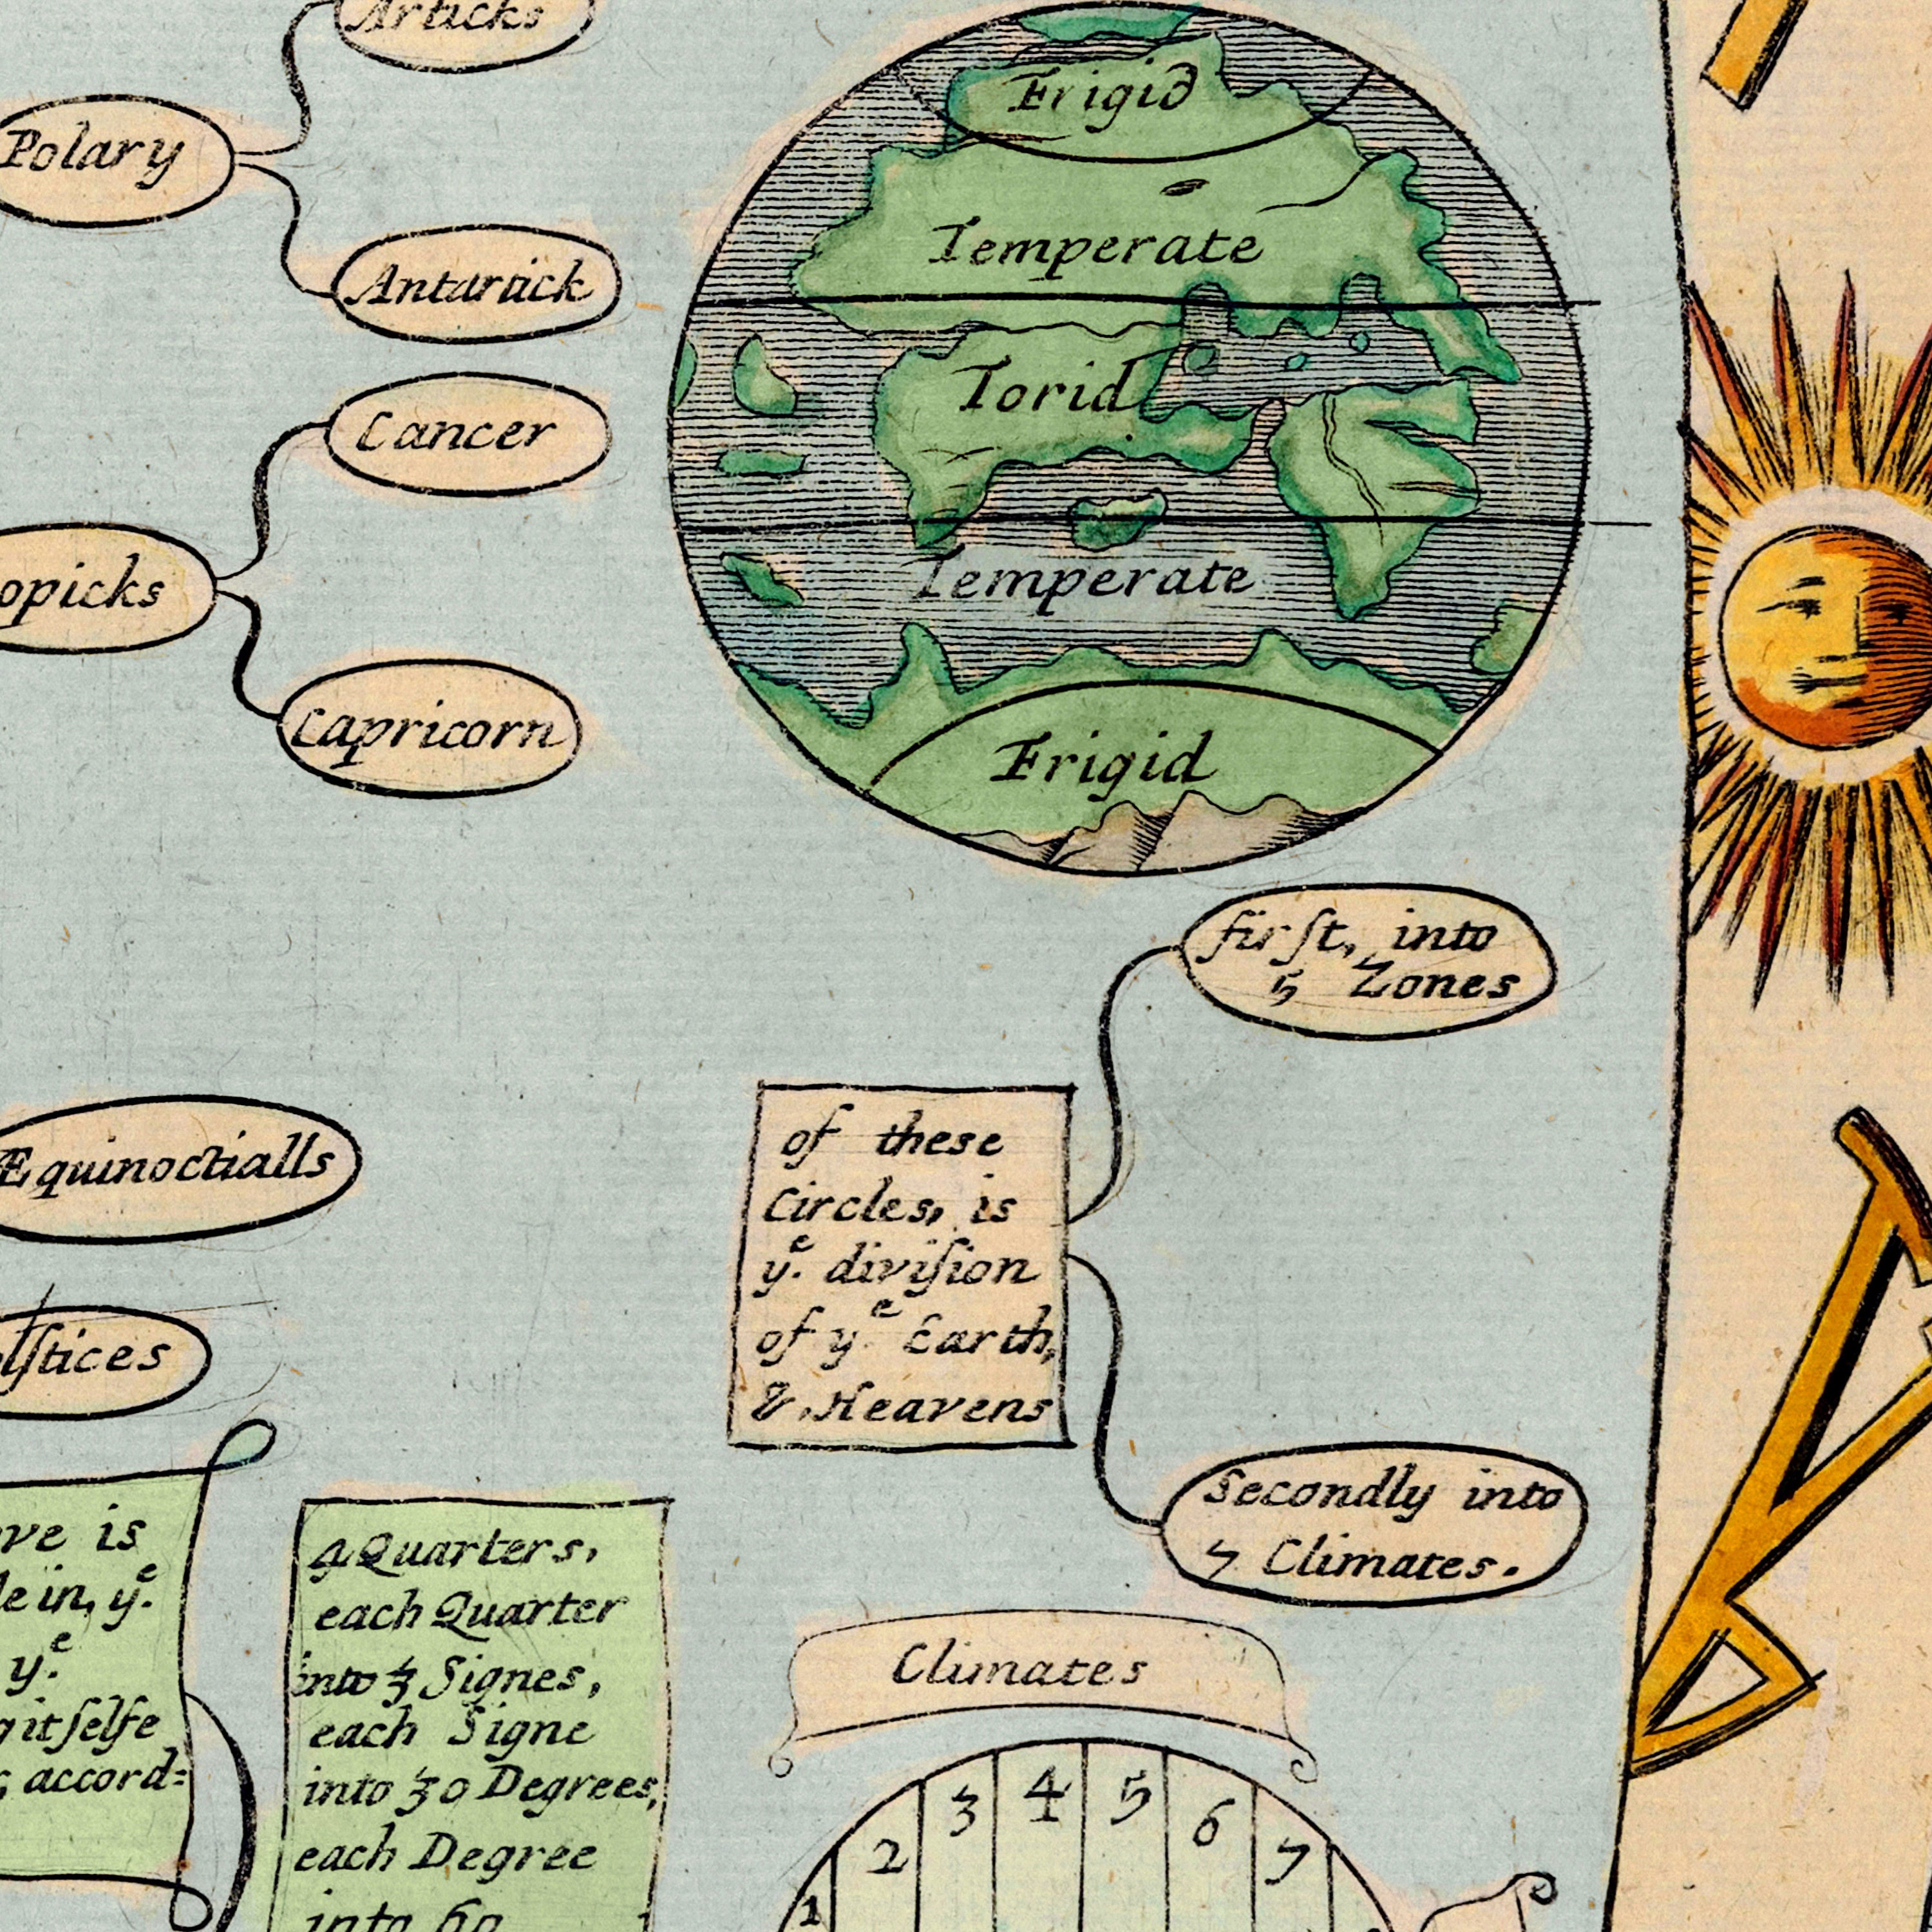 Articks
Polary
Antartick
Cancer
opicks
Capricorn
Frigid
Temperate
Torid
Temperate
Frigid
first, into
5 Zones
of these
Circles, is
yᵉ. division
of yᵉ Earth,
& Heavens
Secondly into
7 Climates.
Æquinoctialls
lstices
ve is
le in, yᵉ.
yᵉ.
g itselfe
, accord=
4 Quarters,
each Quarter
into 3 Signes,
each Signe
into 30 Degrees,
each Degree
into 60
Climates
1 2 3 4 5 6 7